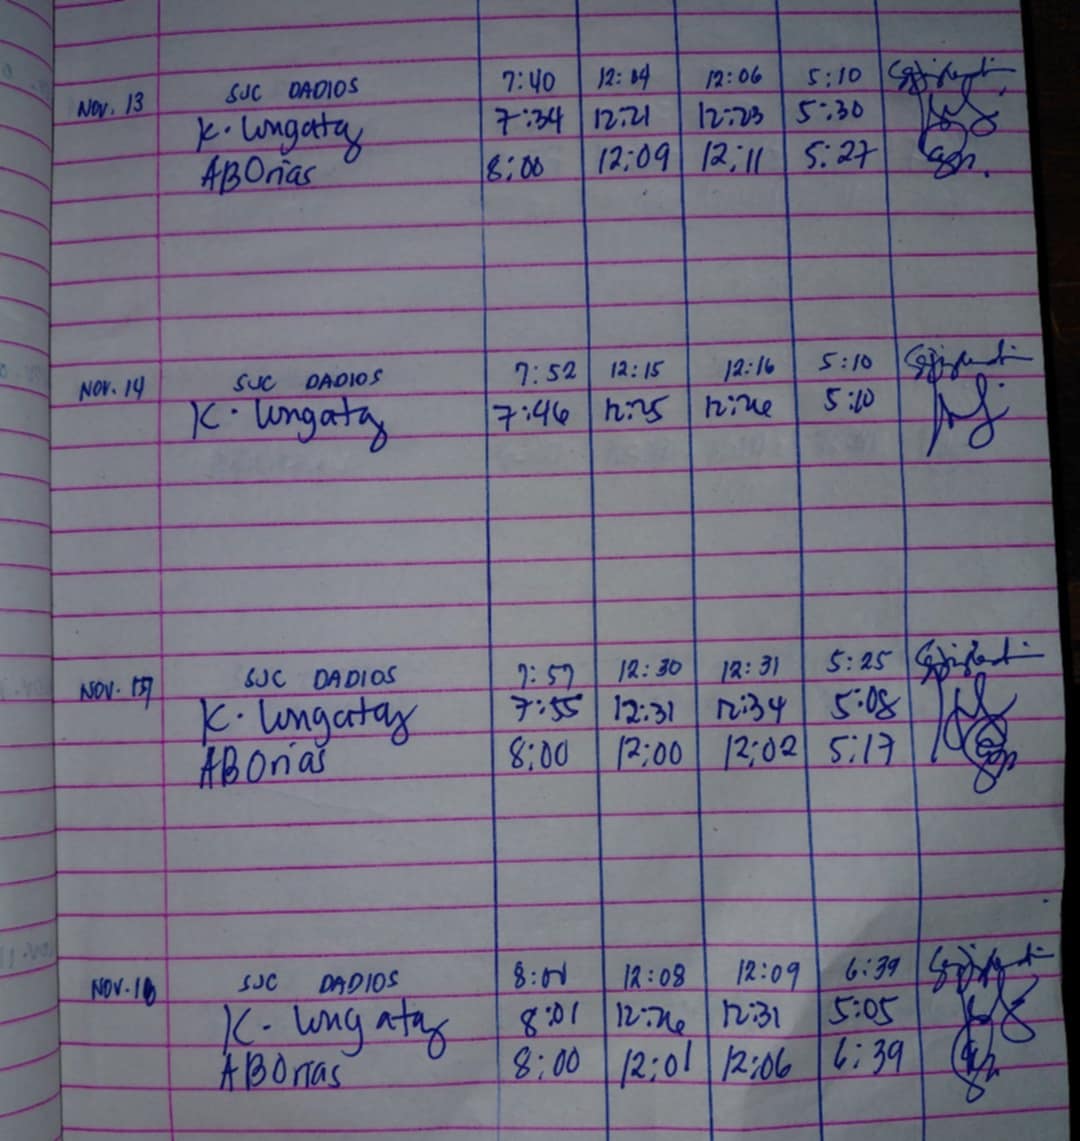 Nov. 13 SJC DADIOS 7:40 12:04 12:06 5:10
K. Lungatay 7:34 12:21 12:23 5:30
ABOrias 8:00 12:09 12:11 5:27
NOV. 14 SJC DADIOS 7:52 12:15 12:16 5:10
K. Lungatay 7:46 12:25 12:26 5:10
NOV. SJC DADIOS 7:57 12:30 12:31 5:25
K. Lungatay 7:55 12:31 12:34 5:08
ABOrias 8:00 12:00 12:02 5:17
NOV. SJC DADIOS 12:08 12:09 6:39
K. Lungatay 8:01 12:26 12:31 5:05
ABOrias 8:00 12:01 12:06 6:39